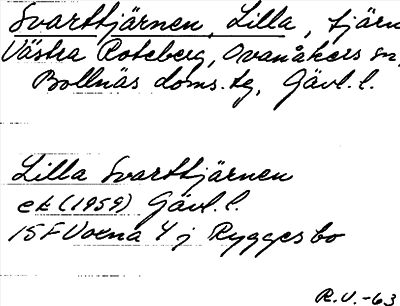 Svarttjärnen, Lilla, tjärn
Västra Roteberg, Ovanåkers sn,
Bollnäs doms.tg, Gävl. l.
Lilla Svarttjärnen
ek (1959) Gävl. l.
15F Voxna 4 j Ryggesbo
R.V.-63